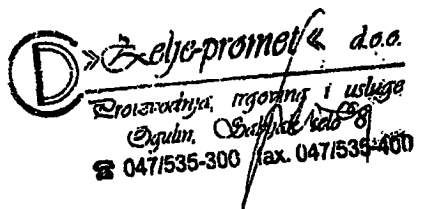 »Željo-promet« d.o.o.
Proizvodnja, trgovina i usluge
Ogulin, selo 8
☎ 047/535-300 fax. 047/535-400